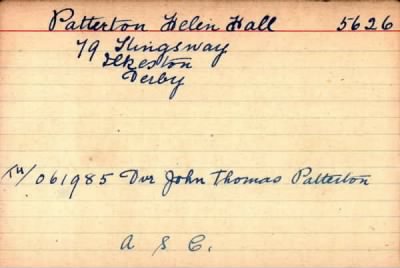 Patterton Helen Hall 5626
79 Kingsway
Ilkeston
Derby
T4/061985 Dvr John Thomas Patterton
A S C.